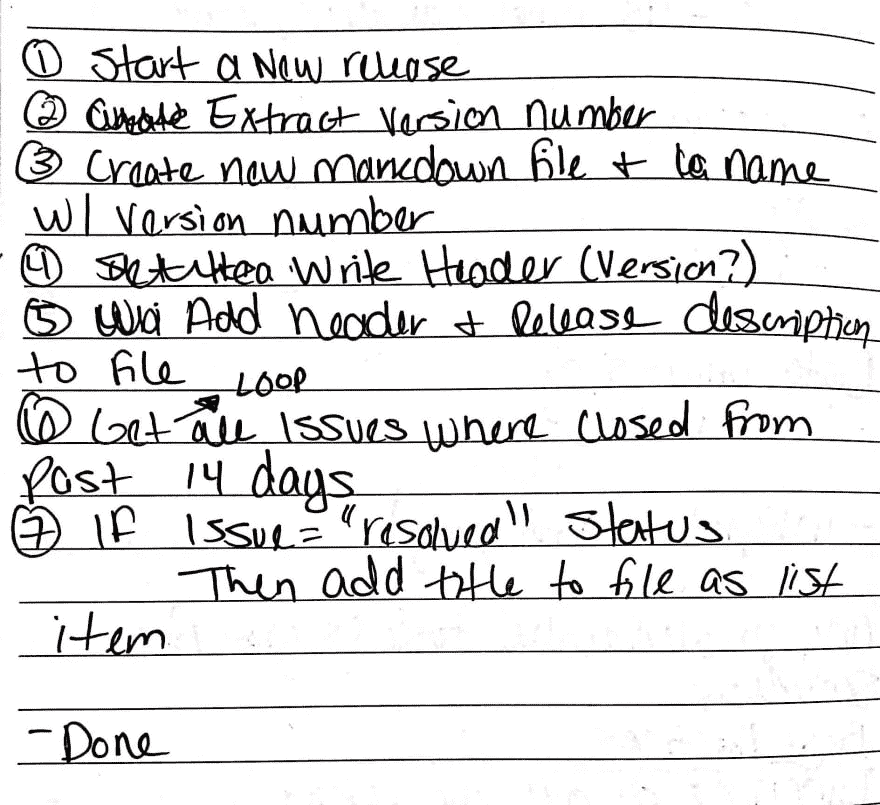 ① Start a New release
② Extract version number
③ Create new markdown file + name
w/ version number
④ Write Header (Version?)
⑤ Add header + Release description
to file
LOOP
⑥ Get all issues where closed from
past 14 days
⑦ If issue = "resolved" status
Then add title to file as list
item
- Done